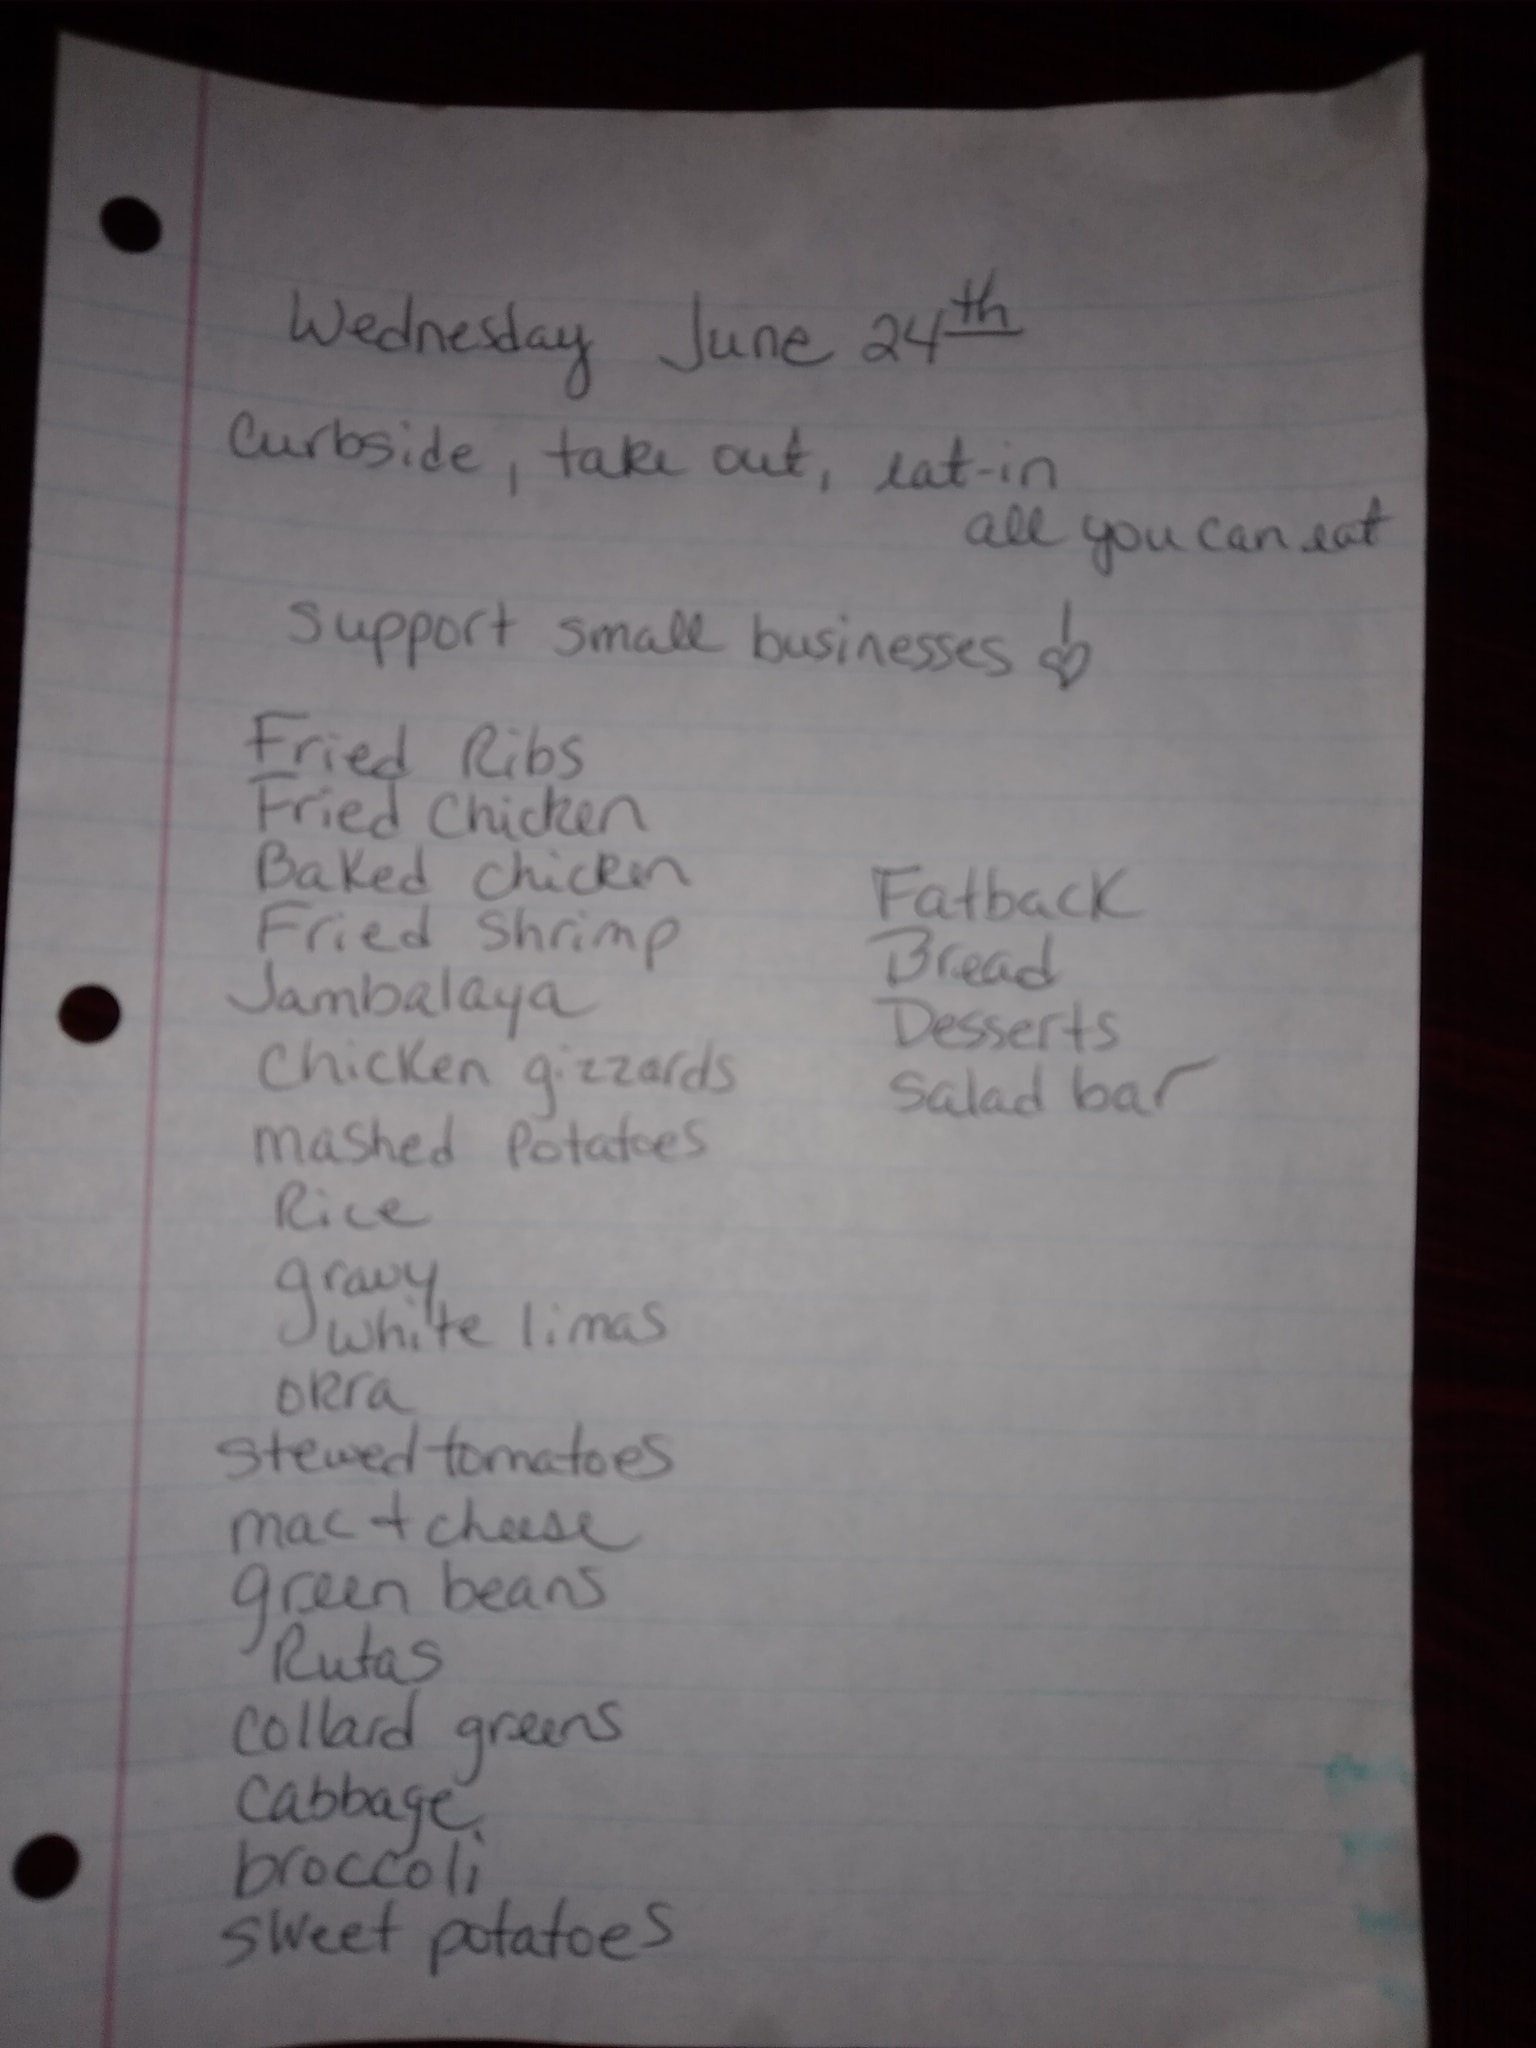 Wednesday June 24th
Curbside, take out, eat-in
all you can eat
Support small businesses!
Fried Ribs
Fried Chicken
Baked chicken
Fried Shrimp
Jambalaya
Chicken gizzards
mashed potatoes
Rice
gravy
white limas
okra
stewed tomatoes
mac + cheese
green beans
Rutas
collard greens
cabbage
broccoli
sweet potatoes
Fatback
Bread
Desserts
Salad bar